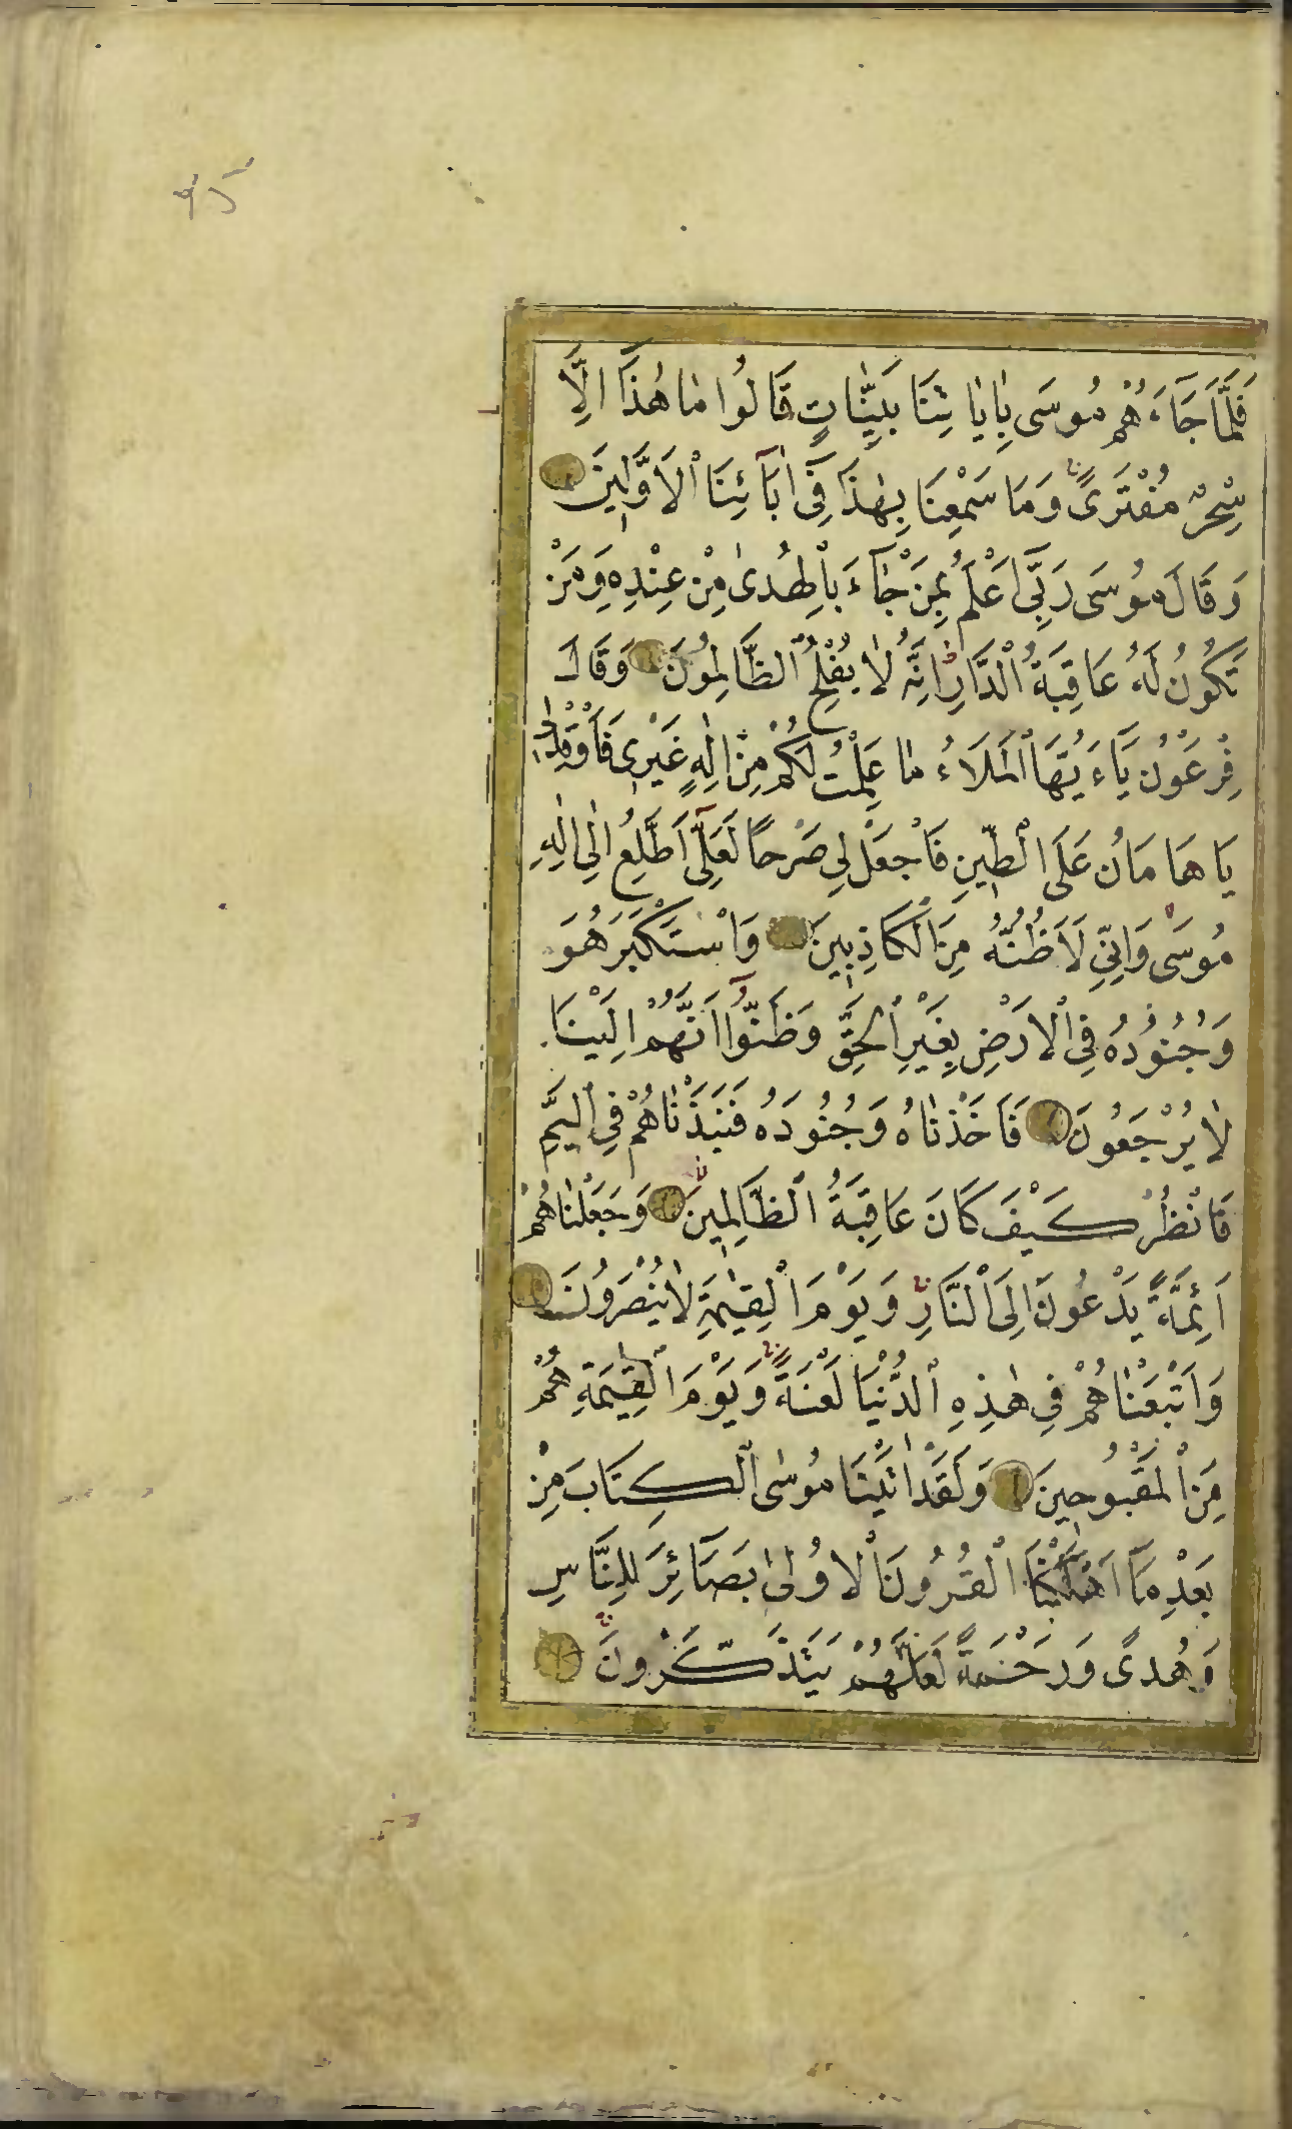 فَلَمَّا جَآءَهُمْ مُوسَى بِاٰيَاتِنَا بَيِّنَاتٍ قَالُوا مَا هٰذَا اِلَّا
سِحْرٌ مُفْتَرًى وَمَا سَمِعْنَا بِهٰذَا فِىٓ اٰبَآئِنَا الْاَوَّلِينَ
وَقَالَ مُوسَى رَبِّىٓ اَعْلَمُ بِمَنْ جَآءَ بِالْهُدٰى مِنْ عِنْدِهِ وَمَنْ
تَكُونُ لَهُ عَاقِبَةُ الْدَّارِ اِنَّهُ لَا يُفْلِحُ الظَّالِمُونَ وَقَالَ
فِرْعَوْنُ يَآءَيُّهَا الْمَلَاءُ مَا عَلِمْتُ لَكُمْ مِنْ اِلٰهٍ غَيْرِى فَاَوْقِدْ لِى
يَا هَامَانُ عَلَى الْطِّينِ فَاجْعَلْ لِى صَرْحًا لَعَلِّىٓ اَطَّلِعُ اِلٰى اِلٰهِ
مُوسٰى وَاِنِّى لَاَظُنُّهُ مِنَ الْكَاذِبِينَ وَاسْتَكْبَرَ هُوَ
وَجُنُودُهُ فِى الْاَرْضِ بِغَيْرِ الْحَقِّ وَظَنُّوٓا اَنَّهُمْ اِلَيْنَا
لَا يُرْجَعُونَ فَاَخَذْنَاهُ وَجُنُودَهُ فَنَبَذْنَاهُمْ فِى الْيَمِّ
فَانْظُرْ كَيْفَ كَانَ عَاقِبَةُ الظَّالِمِينَ وَجَعَلْنَاهُمْ
اَئِمَّةً يَدْعُونَ اِلَى الْنَّارِ وَيَوْمَ الْقِيٰمَةِ لَا يُنْصَرُونَ
وَاَتْبَعْنَاهُمْ فِى هٰذِهِ الْدُّنْيَا لَعْنَةً وَيَوْمَ الْقِيٰمَةِ هُمْ
مِنَ الْمَقْبُوحِينَ وَلَقَدْ اٰتَيْنَا مُوسٰى الْكِتَابَ مِنْ
بَعْدِ مَآ اَهْلَكْنَا الْقُرُونَ الْاُولٰى بَصَآئِرَ لِلنَّاسِ
وَهُدًى وَرَحْمَةً لَعَلَّهُمْ يَتَذَكَّرُونَ